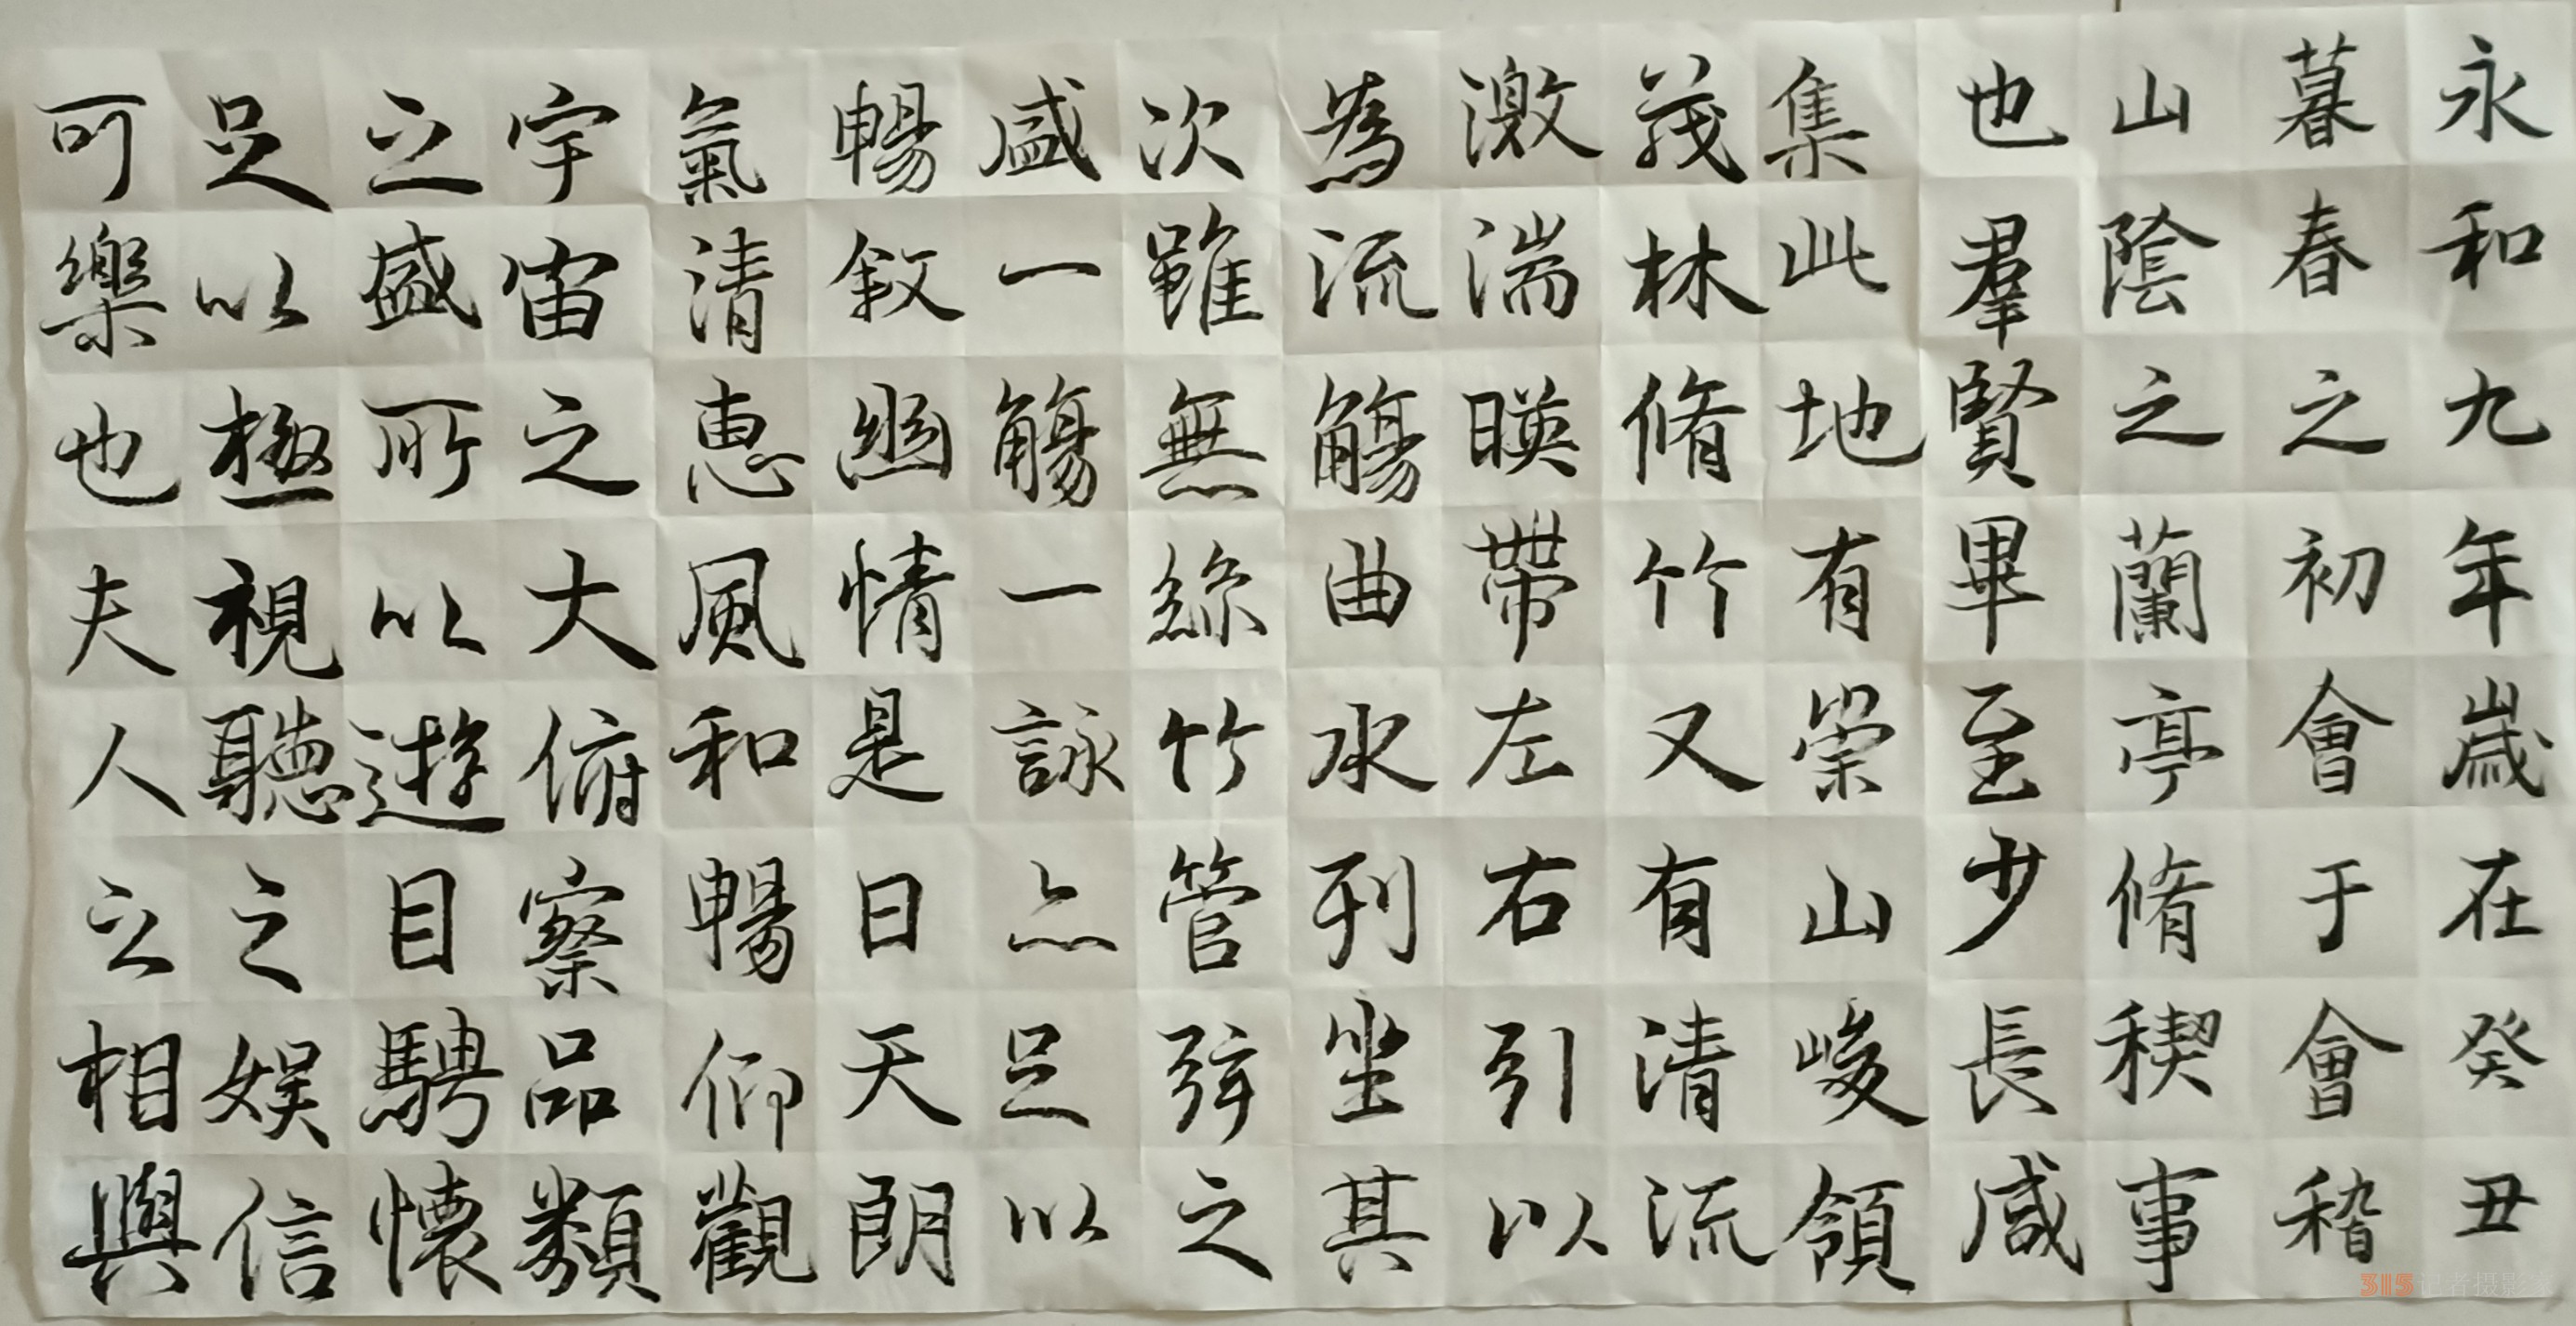 永和九年歲在癸丑
暮春之初會于會稽
山陰之蘭亭脩稧事
也羣賢畢至少長咸
集此地有崇山峻領
茂林脩竹又有清流
激湍暎帶左右引以
為流觴曲水列坐其
次雖無絲竹管弦之
盛一觴一詠亦足以
暢敘幽情是日天朗
氣清惠風和暢仰觀
宇宙之大俯察品類
之盛所以遊目騁懷
足以極視聽之娛信
可樂也夫人之相與
315记者摄影家